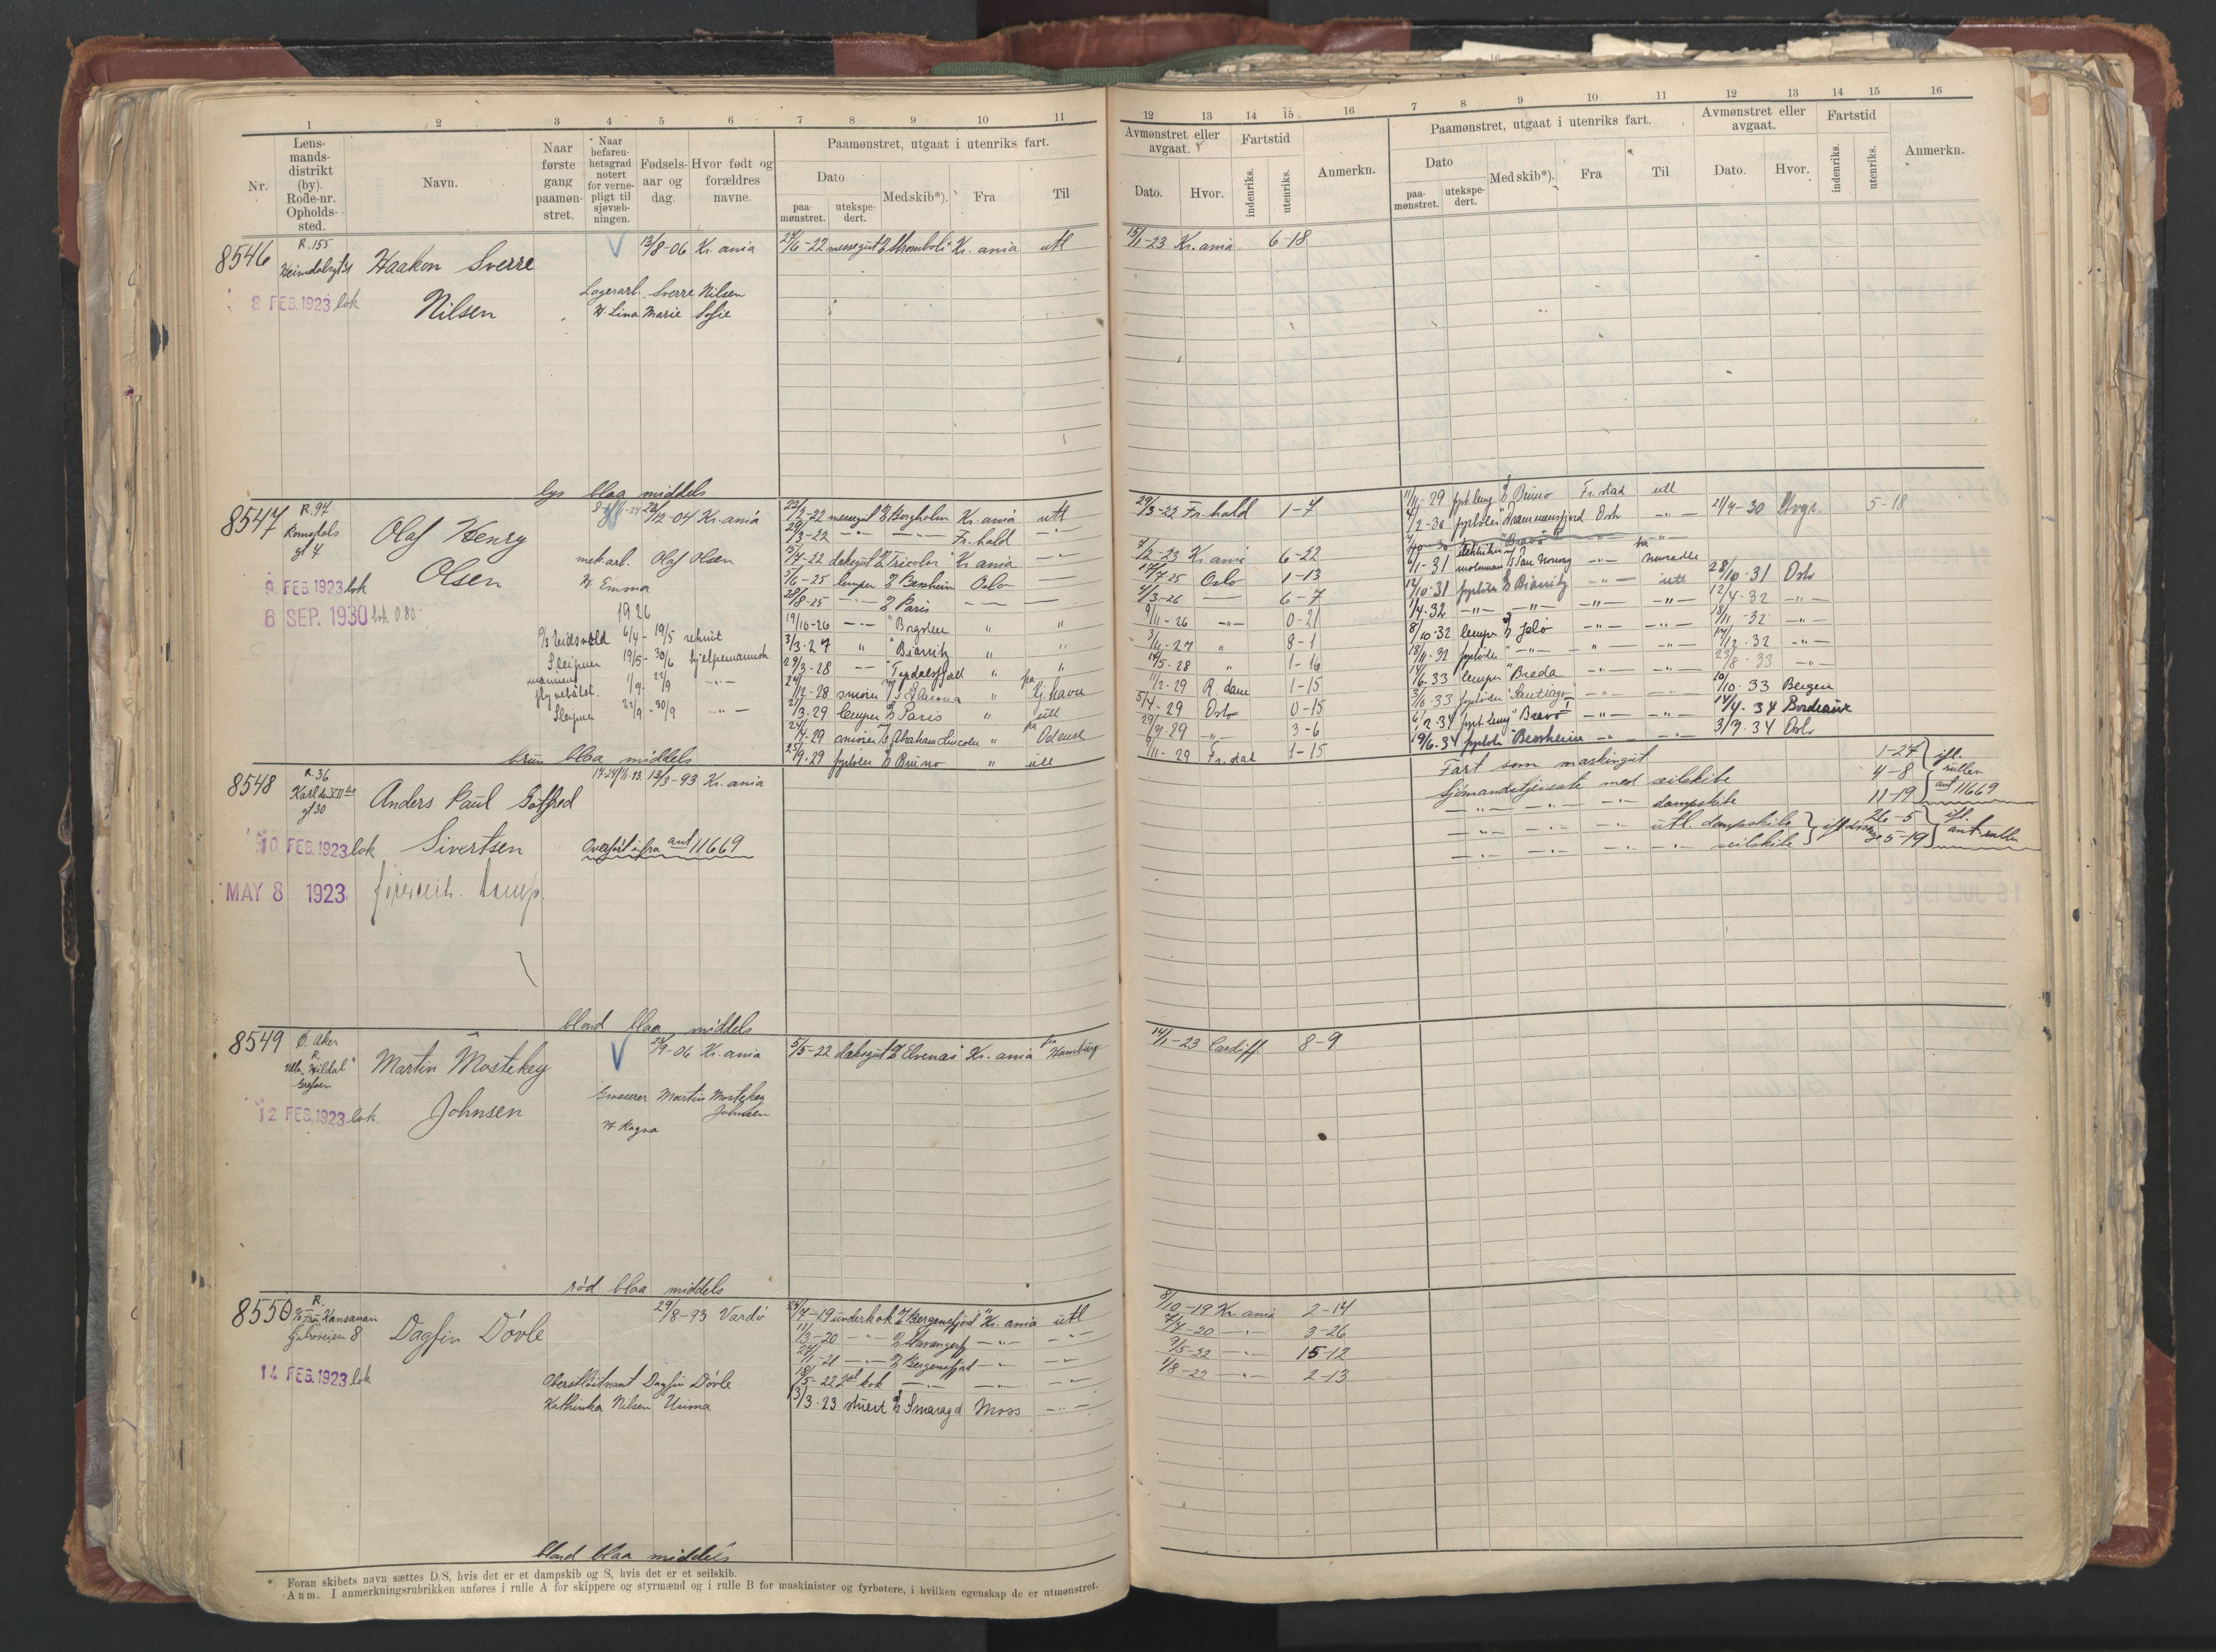 1 2 3 4 5 6 7 8 9 10 11
Nr.
Lens-
mands-
distrikt
(by).
Rode-nr.
Opholds-
sted.
Navn.
Naar
første
gang
paamøn-
stret.
Naar
befaren-
hetsgrad
notert
for verne-
pligt til
sjøvæb-
ningen.
Fødsels-
aar og
dag.
Hvor født og
forældres
navne.
Paamønstret, utgaat i utenriks fart.
Dato
paa-
mønstret.
utekspe-
dert.
Med skib*).
Fra
Til
8546
R. 155
Heimdalsgt 31
Haakon Sverre
Nilsen
8 FEB. 1923 lok
13/8-06 Kr.ania
Lagerarb. Sverre Nilsen
H. Lina Marie Sofie
27/6-22 messegut D/S Stromboli Kr.ania utl
lys blaa middels
8547
R. 97
Romsdals
gt 4
Olaf Henry
Olsen
9. FEB. 1923 lok
6 SEP. 1930 lok 0.80
22/12-04 Kr.ania
mek.arb. Olaf Olsen
H. Emma
1926
Eidsvold 6/4 - 19/5 rekrut
Sleipner 19/5 - 30/6 hjelpemannsk
marinens
flyvebåtst. 1/9 - 22/9 -"-
Sleipner 22/9 - 30/9 -"-
22/2-22 messegut D/S Borgholm Kr.ania utl
29/3-22 -"- -"- Fr.hald
15/7-22 daksgut D/S Tricolor Kr.ania -"-
5/6-25 lemper D/S Bessheim Oslo -
28/8-25 -"- D/S Paris -"- -
19/10-26 -"- " Borgsten " "
3/3-27 " " Biarritz " "
29/3-28 -"- " Topdalsfjord " "
/12-28 smører M/S Glarona " fra Kj.havn
2/3-29 lemper D/S Paris " utl
24/4-29 smører M/S Abraham Lincoln " fra Odense
25/9-29 fyrbøter D/S Bruno " utl
brun blaa middels
8548
R. 36
Karl den XII te
gt 30
Anders Paul Gotfred
Sivertsen
10 FEB. 1923 lok
MAY 8 1923
13/3-93 Kr.ania
Overført ifra ant 11669
blond blaa middels
8549
Ø. Aker
R.
Villa "Hildal"
Grefsen
Martin Mostekey
Johnsen
12 FEB. 1923 lok.
23/9-06 Kr.ania
Grosserer Martin Mostekey
Johnsen
H Ragna
5/5-22 daksgut D/S Elvenæs Kr.ania fra Hamburg
rød blaa middels
8550
R.
8
Dagfin Døvle
14 FEB. 1923 lok
29/8-93 Vardø
Oberstløitnant Dagfin Døvle
Kathinka Nilsen Unima
24/7-19 underkok D/S "Bergensfjord" Kr.ania utl
11/3-20 -"- D/S Stavangerfj -"- -"-
24/1-21 -"- D/S Bergensfjord -"- -"-
18/5-22 2den kok -"- -"- -"-
13/3-23 stuert D/S Smaragd Moss -"-
blond blaa middels
*) Foran skibets navn sættes D/S, hvis det er et dampskib og S, hvis det er et seilskib.
Anm. I anmerkningsrubrikken anføres i rulle A for skippere og styrmænd og i rulle B for maskinister og fyrbøtere, i hvilken egenskap de er utmønstret.
12 13 14 15 16 7 8 9 10 11 12 13 14 15 16
Avmønstret eller
avgaat.
Dato. Hvor.
Fartstid
indenriks. utenriks.
Anmerkn.
Paamønstret, utgaat i utenriks fart.
Dato
paa-
mønstret.
utekspe-
dert.
Med skib*). Fra Til
Avmønstret eller
avgaat.
Dato. Hvor.
Fartstid
indenriks. utenriks.
Anmerkn.
15/1-23 Kr.ania 6-18
29/3-22 Fr.hald 1-7
7/12-23 Kr.ania 6-22
17/7-25 Oslo 1-13
4/3-26 -"- 6-7
9/11-26 -"- 0-21
3/11-27 " 8-1
14/5-28 " 1-16
11/2-29 R.dam 1-15
5/4-29 Oslo 0-15
29/7-29 -"- 3-6
9/11-29 Fr.stad 1-15
11/11-29 fyrb.lemp. D/S Bruno Fr.stad utl
4/2-30 fyrbøter Drammensfjord Oslo -"- 21/7-30 Stvgr. 5-18
6/1-31 motormann M/S Pan Norway -"- fra Newcastle
14/10-31 fyrbøter D/S Biarritz -"- utl 28/10-31 Oslo
1/4-32 -"- -"- -"- -"- 12/4-32 -"-
8/10-32 lemper D/S Jelø -"- -"- 18/11-32 -"-
18/11-32 fyrbøter " -"- -"- -"- 14/12-32 -"-
14/6-33 lemper "Breda -"- -"- 23/8-33 -"-
3/10-33 fyrbøter "Santiago" -"- -"- 20/10-33 Bergen
6/2-34 fyrb.lemp "Bravo I -"- -"- 14/4-34 Bordeaux
19/6-34 fyrbøter "Bessheim -"- -"- 3/7-34 Oslo
Fart som maskingut 1-27
Sjømandstjeneste med seilskibe 4-8
-"- -"- -"- dampskibe 11-19
-"- -"- -"- utl. dampskibe 26-5
-"- -"- -"- -"- seilskibe 5-19
ifl. rullen ant 11669
ifl. ant rullen
14/1-23 Cardiff 8-9
8/10-19 Kr.ania 2-14
7/7-20 -"- 3-26
9/5-22 -"- 15-12
1/8-22 -"- 2-13